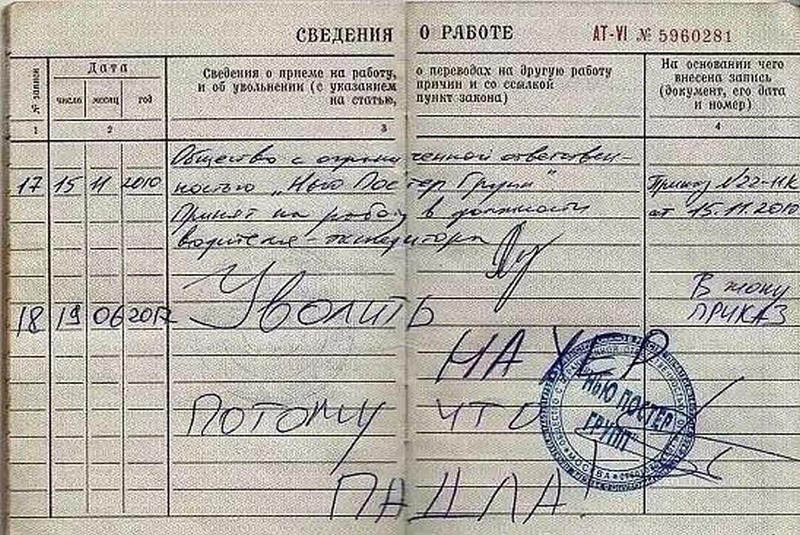 СВЕДЕНИЯ О РАБОТЕ АТ-VI № 5960281
№ записи
Дата
число месяц год
Сведения о приеме на работу, о переводах на другую работу
и об увольнении (с указанием причин и со ссылкой
на статью, пункт закона)
На основании чего
внесена запись
(документ, его дата
и номер)
1 2 3 4
Общество с ограниченной ответствен-
17 15 11 2010 ностью „Нью Постер Групп" Приказ №22-11К
Принят на работу в должности от 15.11.2010
водителя-экспедитора
18 19 06 2012 Уволить
В жопу
ПРИКАЗ
НАХЕР
ПОТОМУ ЧТО
ПАДЛА
НЬЮ ПОСТЕР
ГРУПП
МОСКВА